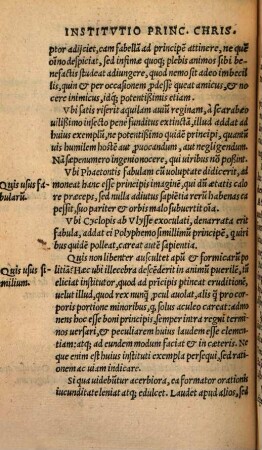 INSTITVTIO PRINC. CHRIS.
ptor adijciet, eam fabellã ad principẽ attinere, ne quẽ
oĩno despiciat, sed infimæ quoq; plebis animos sibi be
nefactis studeat adiungere, quod nemo sit adeo imbecil
lis, quin & per occasionem, posse ut amicus, & no
cere inimicus, idq; potentissimus etiam.
Vbi satis riserit aquilam auiũ reginam, à scarabæo
uilissimo insecto penè funditus extinctã, illud addat ad
huius exemplũ, ne potentissimo quidẽ principi, quantũ
uis humilem hostẽ aut puocandum, aut negligendum.
Nã sæpenumero ingenio nocere, qui uiribus nõ possĩt.
Vbi Phaetontis fabulam cũ uoluptate didicerit, ad
Quis usus fa
bularũ.
moneat hanc esse principis imaginẽ, qui dũ ætatis calo
re præceps, sed nulla adiutus sapiẽtia rerũ habenas ca
pessit, suo pariter & orbis malo subuertit oĩa.
Vbi Cyclopis ab Vlysse exoculati, denarrata erit
fabula, addat ei Polyphemo simillimũ principẽ, quiri
bus quidẽ polleat, careat autẽ sapientia.
Quis non libenter auscultet apũ & formicarũ po
Quis usus si
milium.
litiã? Hæc ubi illecebra descẽderit in animũ puerilẽ, tũ
eliciat institutor, quod ad prĩcipis ptineat eruditionẽ,
uelut illud, quod rex nunq̃ pcul auolat, alis q̃ pro cor
poris portione minoribus, q; solus aculeo careat: ad
nens hoc esse boni principis, semper intra regni termi
nos uersari, & peculiarem huius laudem esse clemen
tiam; atq; ad eundem modum faciat & in cæteris. Ne
que enim est huius instituti exempla persequi, sed ratio
nem ac uiam indicare.
Si qua uidebũtur acerbiora, ea formator orationis
iucunditate leniat atq; edulcet. Laudet apud alios, sed